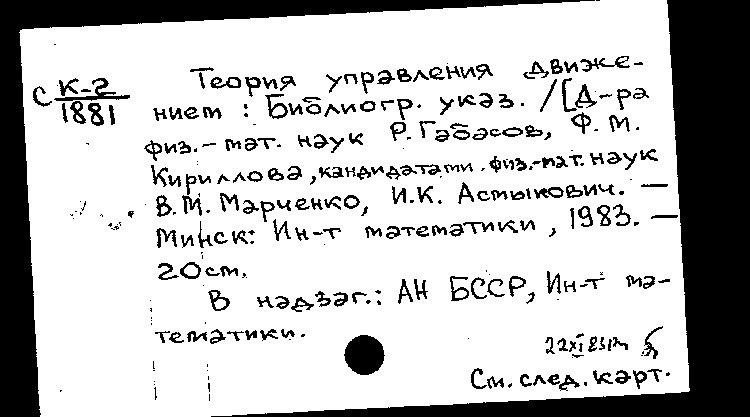 С К-2
1881
Теория управления движе-
нием : Библиогр. указ. / [Д-ра
физ.-мат. наук Р. Габасов, Ф. М.
Кириллова, кандидатами физ.-мат. наук
В. М. Марченко, И. К. Астыкович. —
Минск: Ин-т математики, 1983. —
20 см.
В надзаг.: АН БССР, Ин-т ма-
тематики.
См. след. карт.